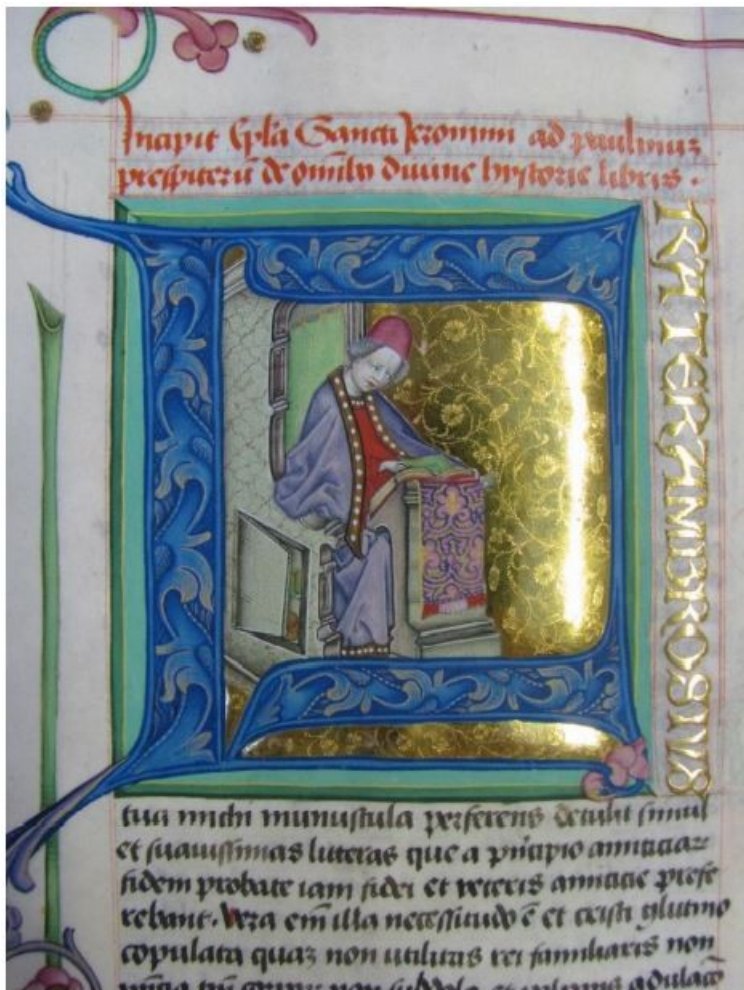 Incipit Epl̄a Sancti Jeronimi ad paulinuꝫ
prespiterū de om̄ibꝰ diuine hystorie libris .
F
RATER AMBROSIVS
tua michi munuscula perferens detulit simul
et suauissimas litteras que a pn̄cipio amiciciaꝝ
fidem probate iam fidei et veteris amicicie prefe
rebant . Vera em̄ illa necessitudo ē et cristi glutino
copulata quaꝫ non utilitas rei familiaris non
non subdola et adulacō